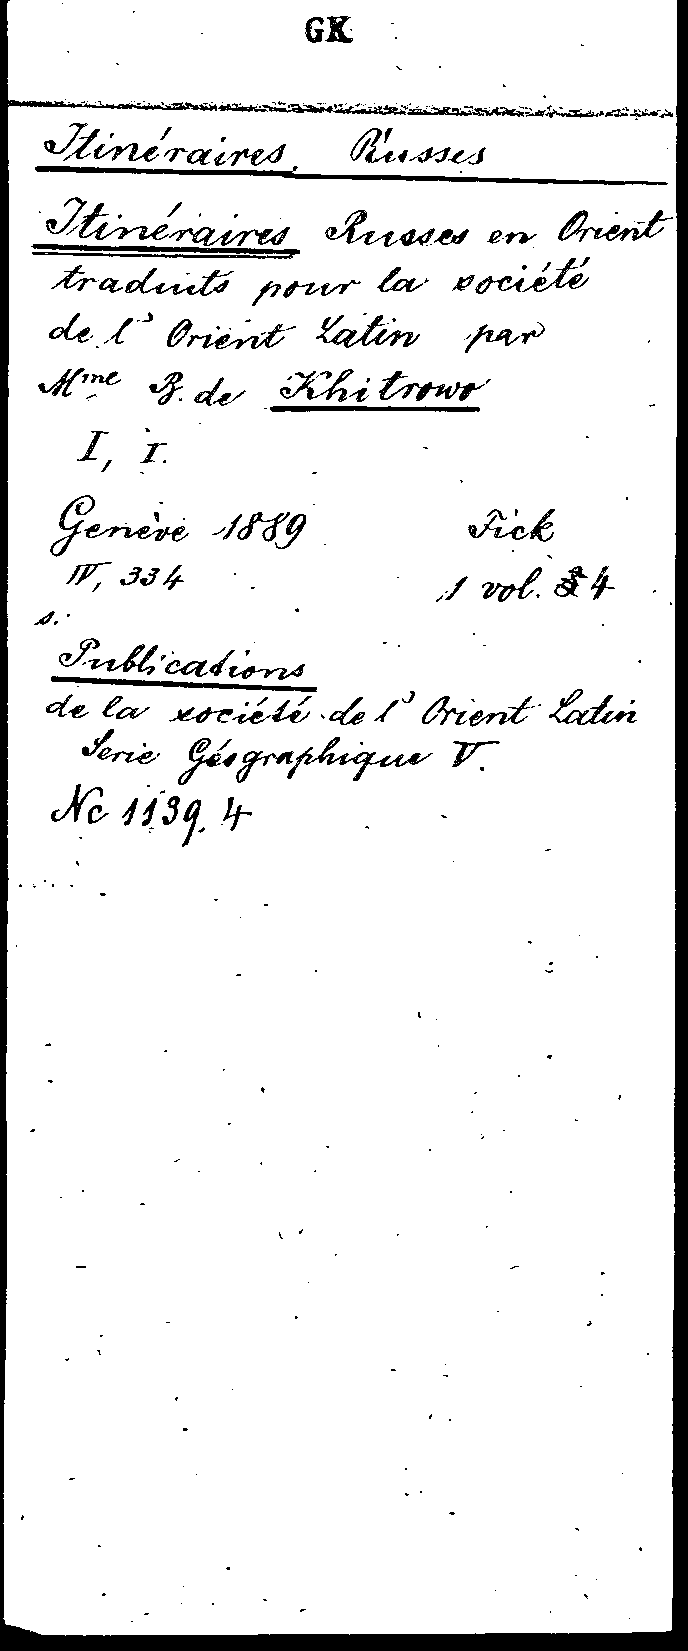 GK
Itinéraires, Russes
Itinéraires Russes en Orient
traduits pour la société
de l'Orient Latin par
Mme B. de Khitrowo
I, I.
Genève 1889 Fick
IV, 334 1 vol. 4
s.
Publications
de la société de l'Orient Latin
Serie Géographique V.
Nc 1139, 4